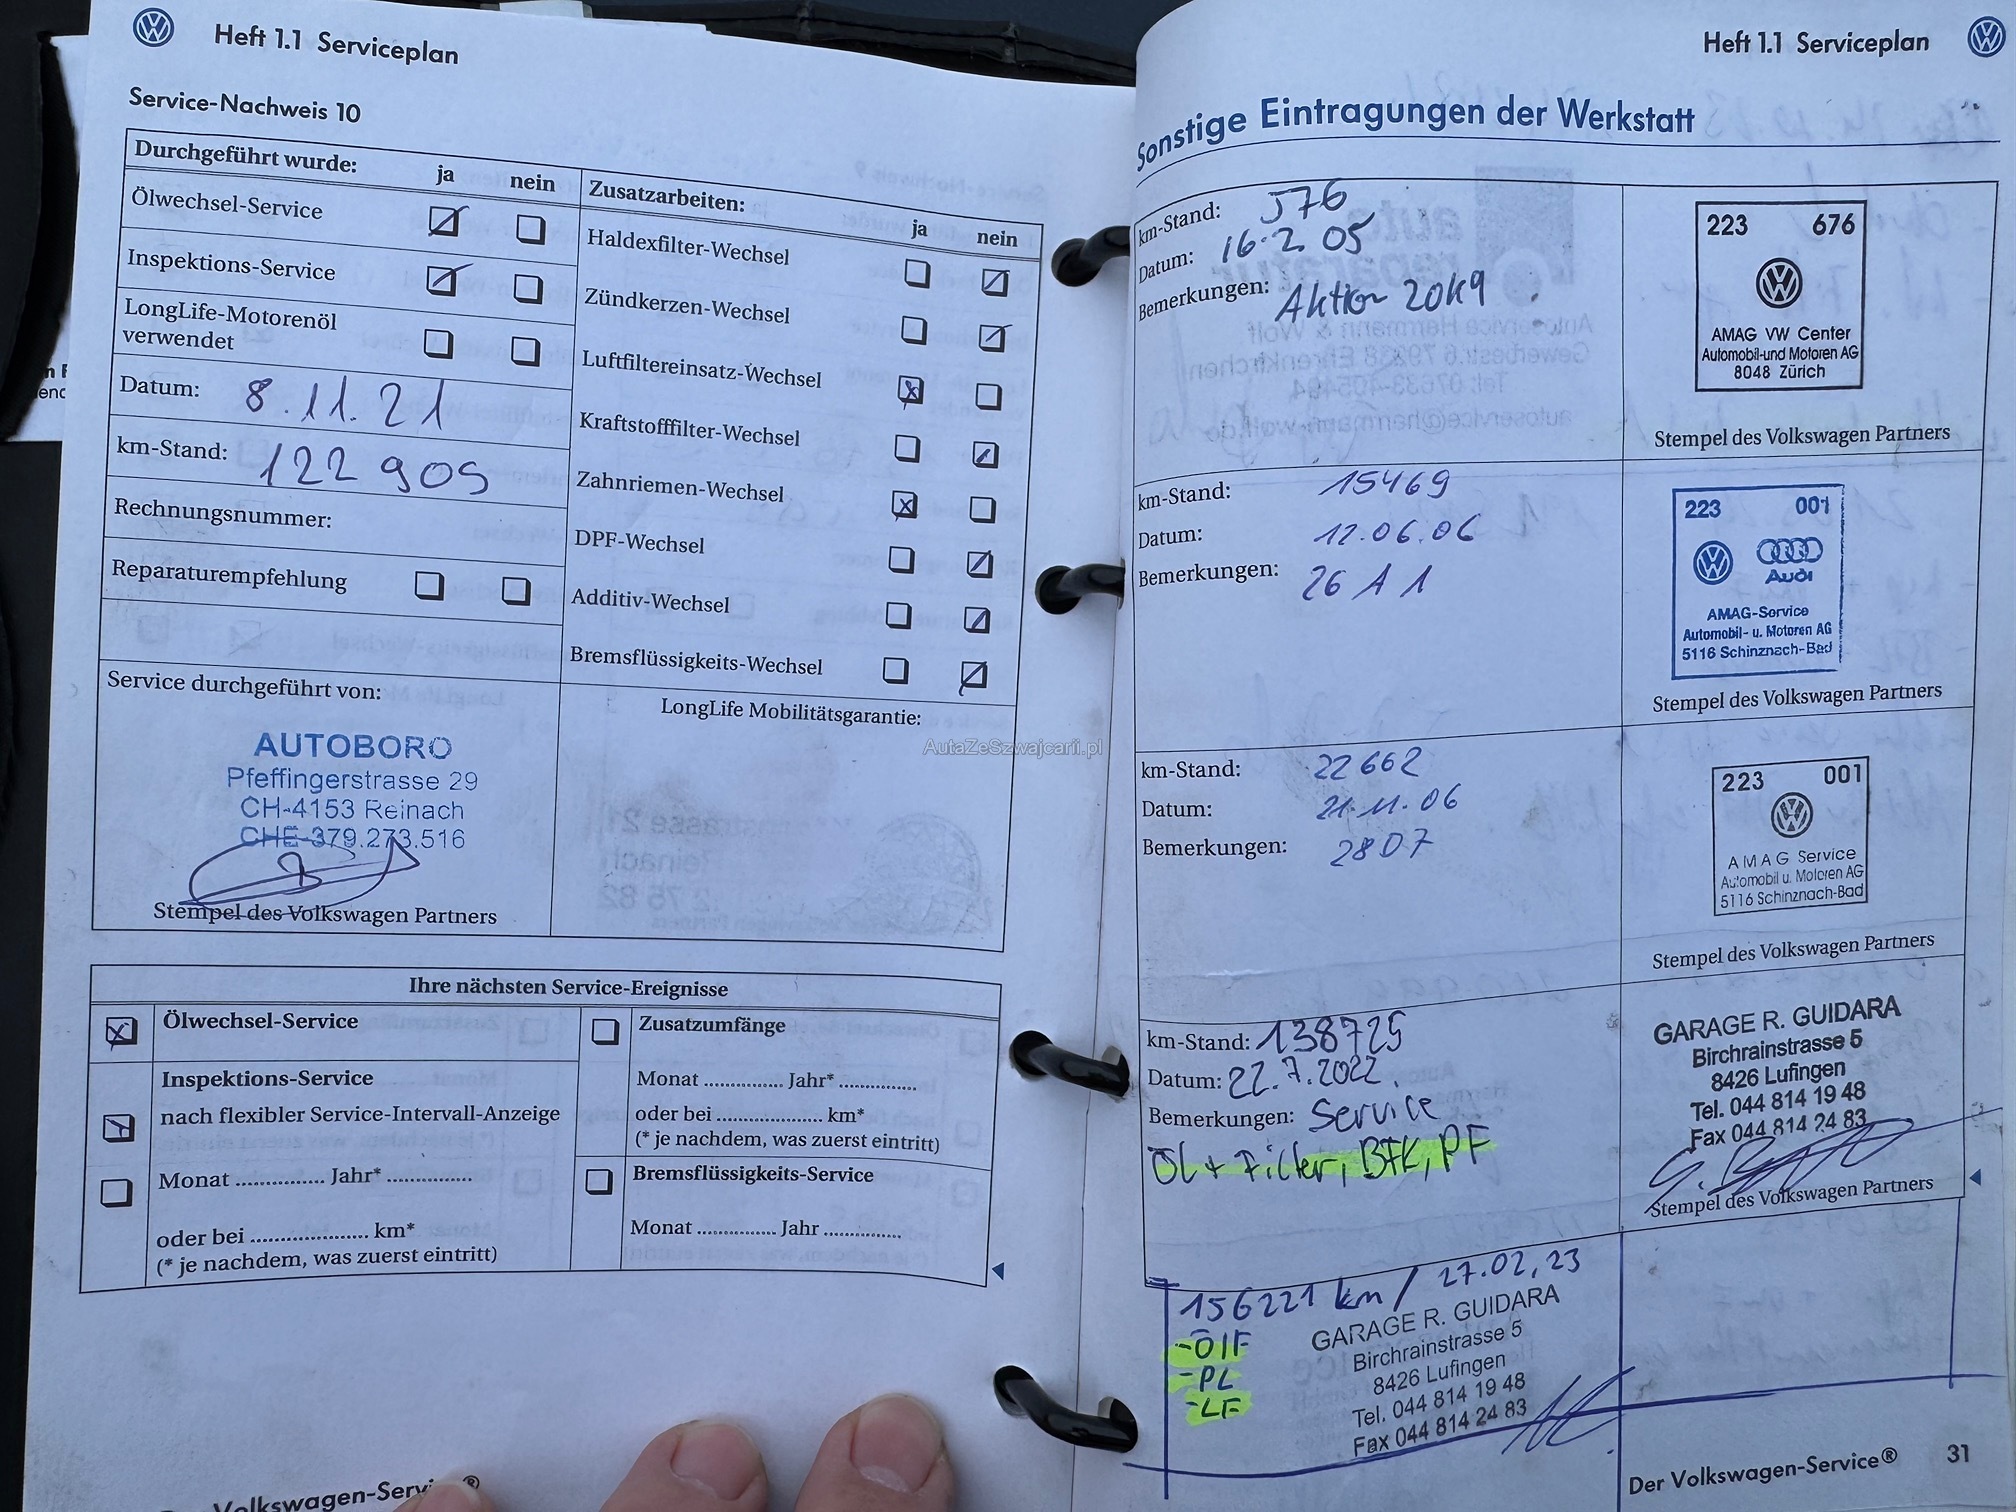 Heft 1.1 Serviceplan
Service-Nachweis 10
Durchgeführt wurde: ja nein
Ölwechsel-Service
Inspektions-Service
LongLife-Motorenöl
verwendet
Datum: 8.11.21
km-Stand: 122 905
Rechnungsnummer:
Reparaturempfehlung
Zusatzarbeiten: ja nein
Haldexfilter-Wechsel
Zündkerzen-Wechsel
Luftfiltereinsatz-Wechsel
Kraftstofffilter-Wechsel
Zahnriemen-Wechsel
DPF-Wechsel
Additiv-Wechsel
Bremsflüssigkeits-Wechsel
Service durchgeführt von:
AUTOBORO
Pfeffingerstrasse 29
CH-4153 Reinach
CHE-379.273.516
Stempel des Volkswagen Partners
LongLife Mobilitätsgarantie:
AutaZeSzwajcarii.pl
Ihre nächsten Service-Ereignisse
Ölwechsel-Service
Inspektions-Service
nach flexibler Service-Intervall-Anzeige
Monat ............... Jahr* ...............
oder bei .................... km*
(* je nachdem, was zuerst eintritt)
Zusatzumfänge
Monat ............... Jahr* ...............
oder bei .................... km*
(* je nachdem, was zuerst eintritt)
Bremsflüssigkeits-Service
Monat ............... Jahr ...............
Volkswagen-Service®
Heft 1.1 Serviceplan
Sonstige Eintragungen der Werkstatt
km-Stand: 576
Datum: 16.2.05
Bemerkungen: Aktion 20K9
223 676
AMAG VW Center
Automobil-und Motoren AG
8048 Zürich
Stempel des Volkswagen Partners
km-Stand: 15469
Datum: 12.06.06
Bemerkungen: 26 A 1
223 001
Audi
AMAG-Service
Automobil- u. Motoren AG
5116 Schinznach-Bad
Stempel des Volkswagen Partners
km-Stand: 22662
Datum: 21.11.06
Bemerkungen: 28D7
223 001
AMAG Service
Automobil u. Motoren AG
5116 Schinznach-Bad
Stempel des Volkswagen Partners
km-Stand: 138725
Datum: 22.7.2022
Bemerkungen: Service
ÖL + Filter, BFK, PF
GARAGE R. GUIDARA
Birchrainstrasse 5
8426 Lufingen
Tel. 044 814 19 48
Fax 044 814 24 83
Stempel des Volkswagen Partners
156221 km / 27.02.23
-ÖIF
-PL
-LF
GARAGE R. GUIDARA
Birchrainstrasse 5
8426 Lufingen
Tel. 044 814 19 48
Fax 044 814 24 83
Der Volkswagen-Service® 31